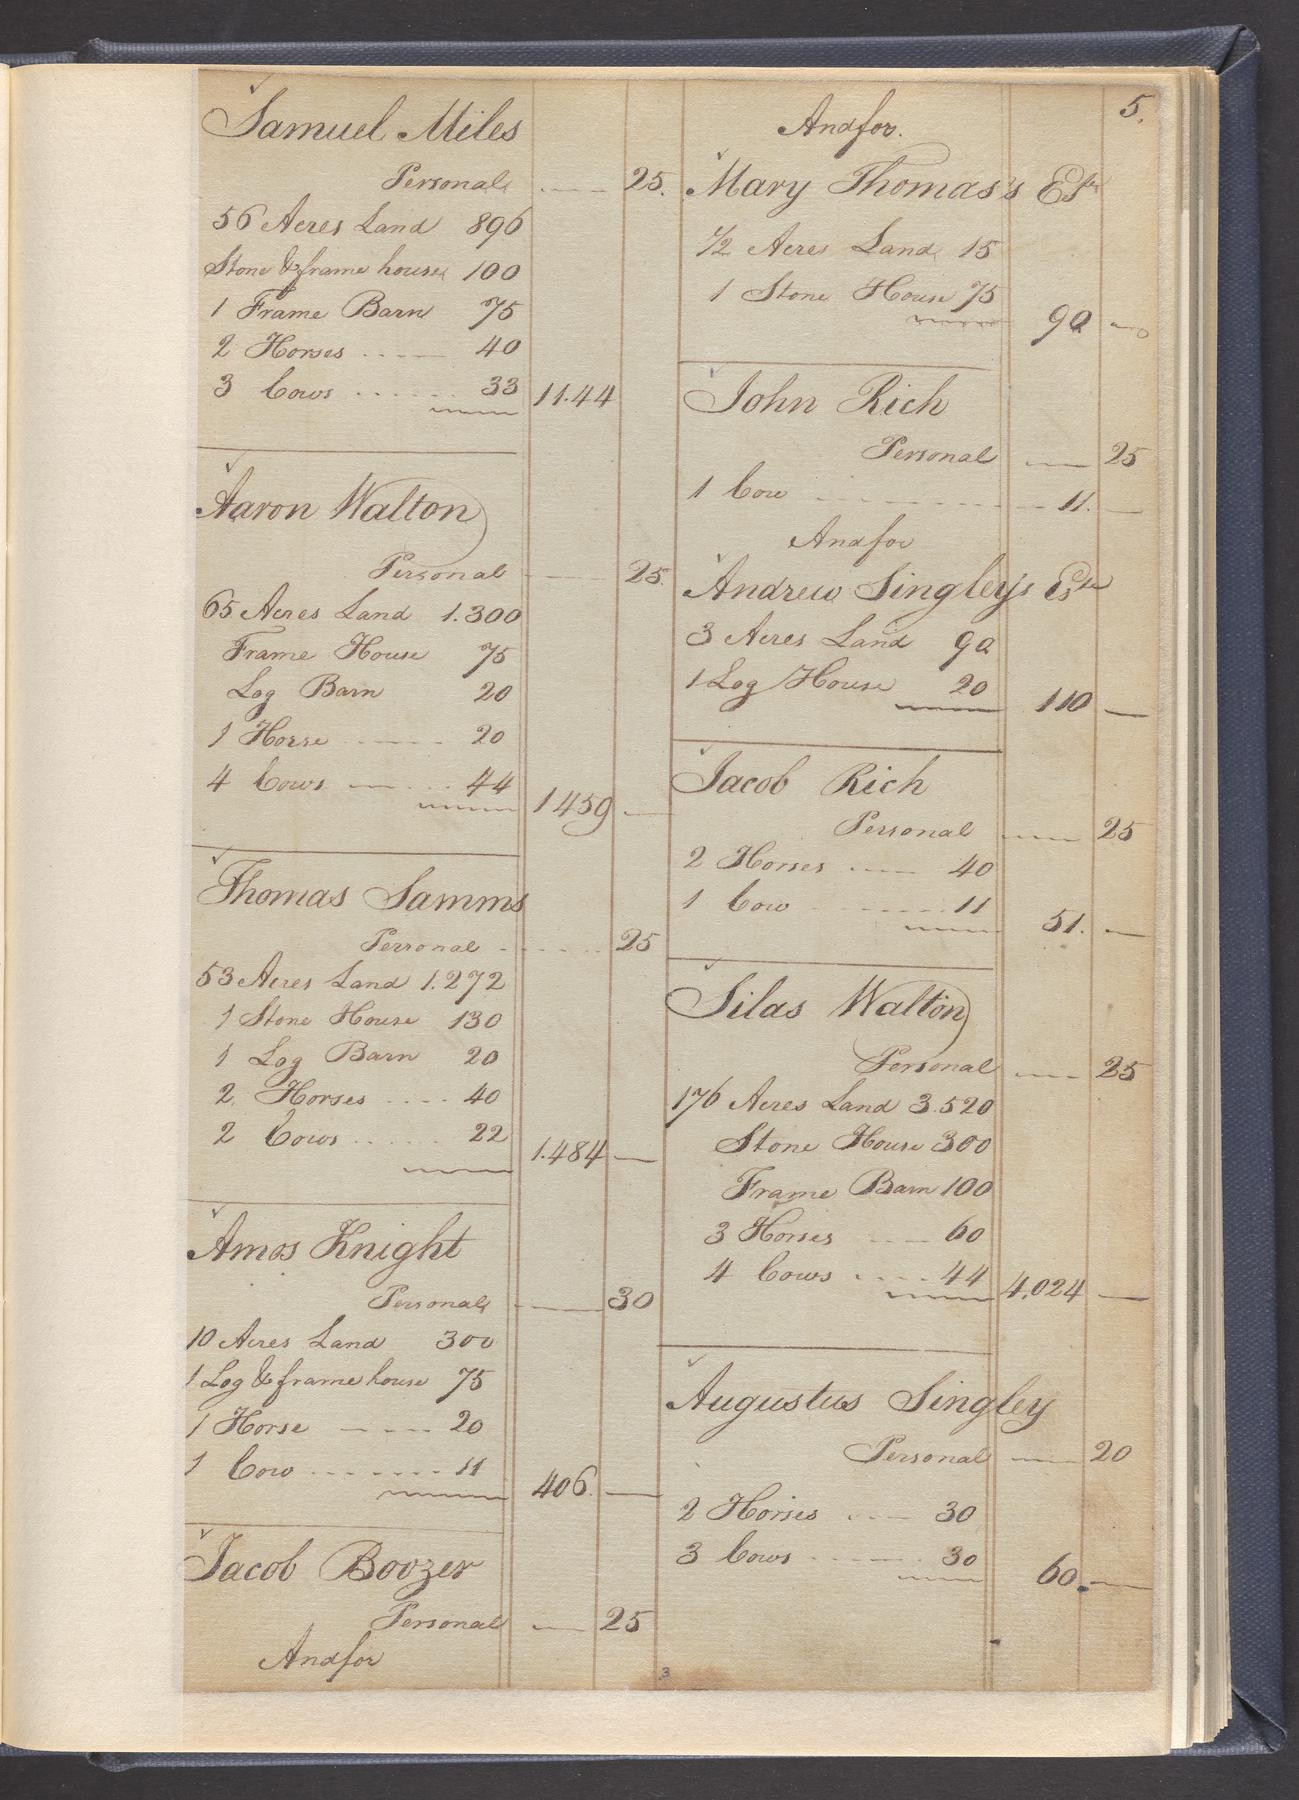 Samuel Miles
Personal 25.
56 Acres Land 896
Stone & frame house 100
1 Frame Barn 75
2 Horses 40
3 Cows 33 11.44
Aaron Walton
Personal 25
65 Acres Land 1.300
Frame House 75
Log Barn 20
1 Horse 20
4 Cows 44 1459
Thomas Samms
Personal 25
53 Acres Land 1.272
1 Stone House 130
1 Log Barn 20
2 Horses 40
2 Cows 22 1.484
Amos Knight
Personal 30
10 Acres Land 300
1 Log & frame house 75
1 Horse 20
1 Cow 11 406.
Jacob Boozer
Personal 25
Andfor
5.
Andfor.
Mary Thomas's Este
1/2 Acres Land 15
1 Stone House 75 90
John Rich
Personal 25
1 Cow 11.
Andfor
Andrew Singley's Este
3 Acres Land 90
1 Log House 20 110
Jacob Rich
Personal 25
2 Horses 40
1 Cow 11 51.
Silas Walton
Personal 25
176 Acres Land 3.520
Stone House 300
Frame Barn 100
3 Horses 60
4 Cows 44 4,024
Augustus Singley
Personal 20
2 Horses 30
3 Cows 30 60.
3